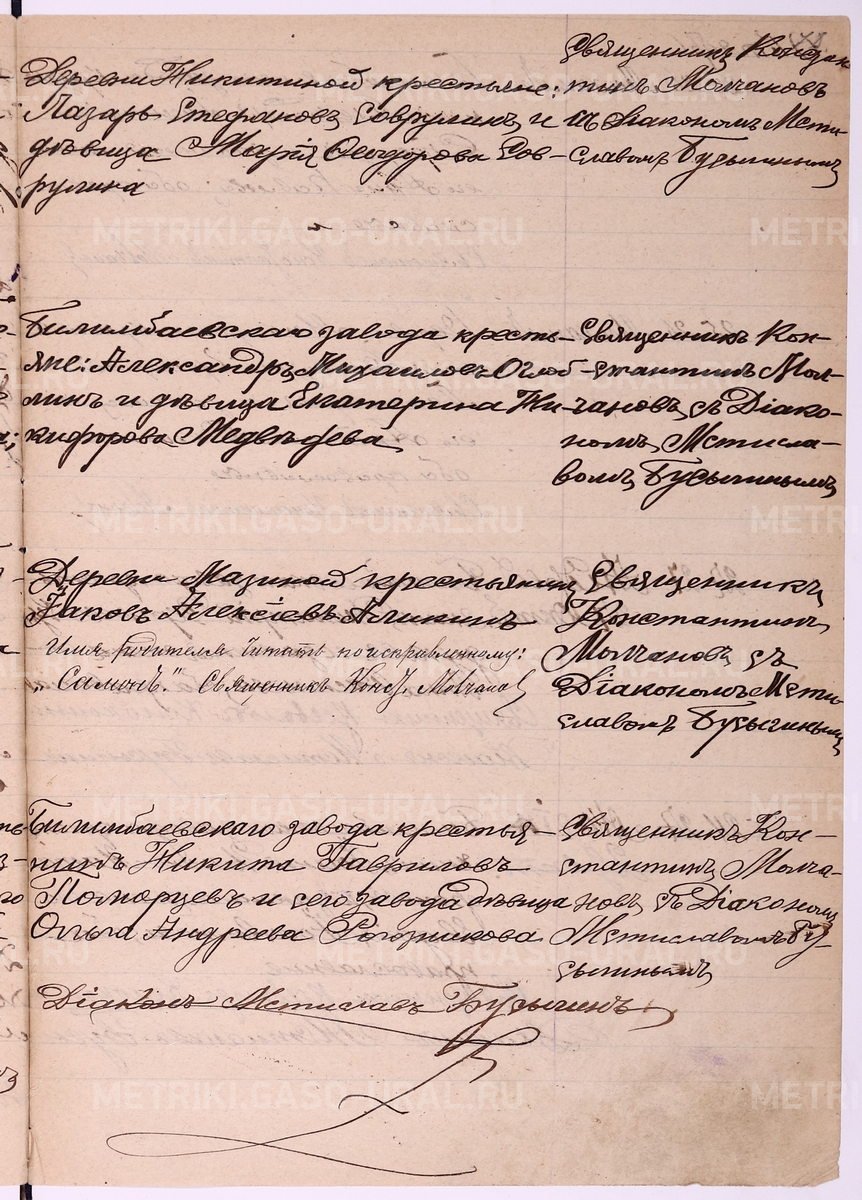 Деревни Никитиной крестьяне:
Лазарь Стефановъ Соврулинъ и
дѣвица Марія Ѳеодорова Сов-
рулина
Священникъ Констан
тинъ Молчановъ
съ Діакономъ Мсти-
славомъ Бусыгинымъ
Билимбаевскаго завода кресть-
яне: Александръ Михаиловъ Оглоб-
линъ и дѣвица Екатерина Ни-
кифорова Медвѣдева
Священникъ Кон-
стантинъ Мол-
чановъ съ Діако-
номъ Мстисла-
вомъ Бусыгинымъ
Деревни Мазиной крестьянинъ
Іаковъ Алексіевъ Аликинъ
Имя родителя читать по исправленному:
„Самонъ." Священникъ Конст. Молчановъ
Священникъ
Константинъ
Молчановъ съ
Діакономъ Мсти
славомъ Бусыгинымъ
Билимбаевскаго завода крестья-
нинъ Никита Гавриловъ
Поморцевъ и сего завода дѣвица
Ольга Андреева Рогожникова
Священникъ Кон-
стантинъ Молча-
новъ съ Діакономъ
Мстиславомъ Бу-
сыгинымъ
Діаконъ Мстиславъ Бусыгинъ
METRIKI.GASO-URAL.RU
METRIKI.GASO-URAL.RU
METRIKI.GASO-URAL.RU
METRIKI.GASO-URAL.RU